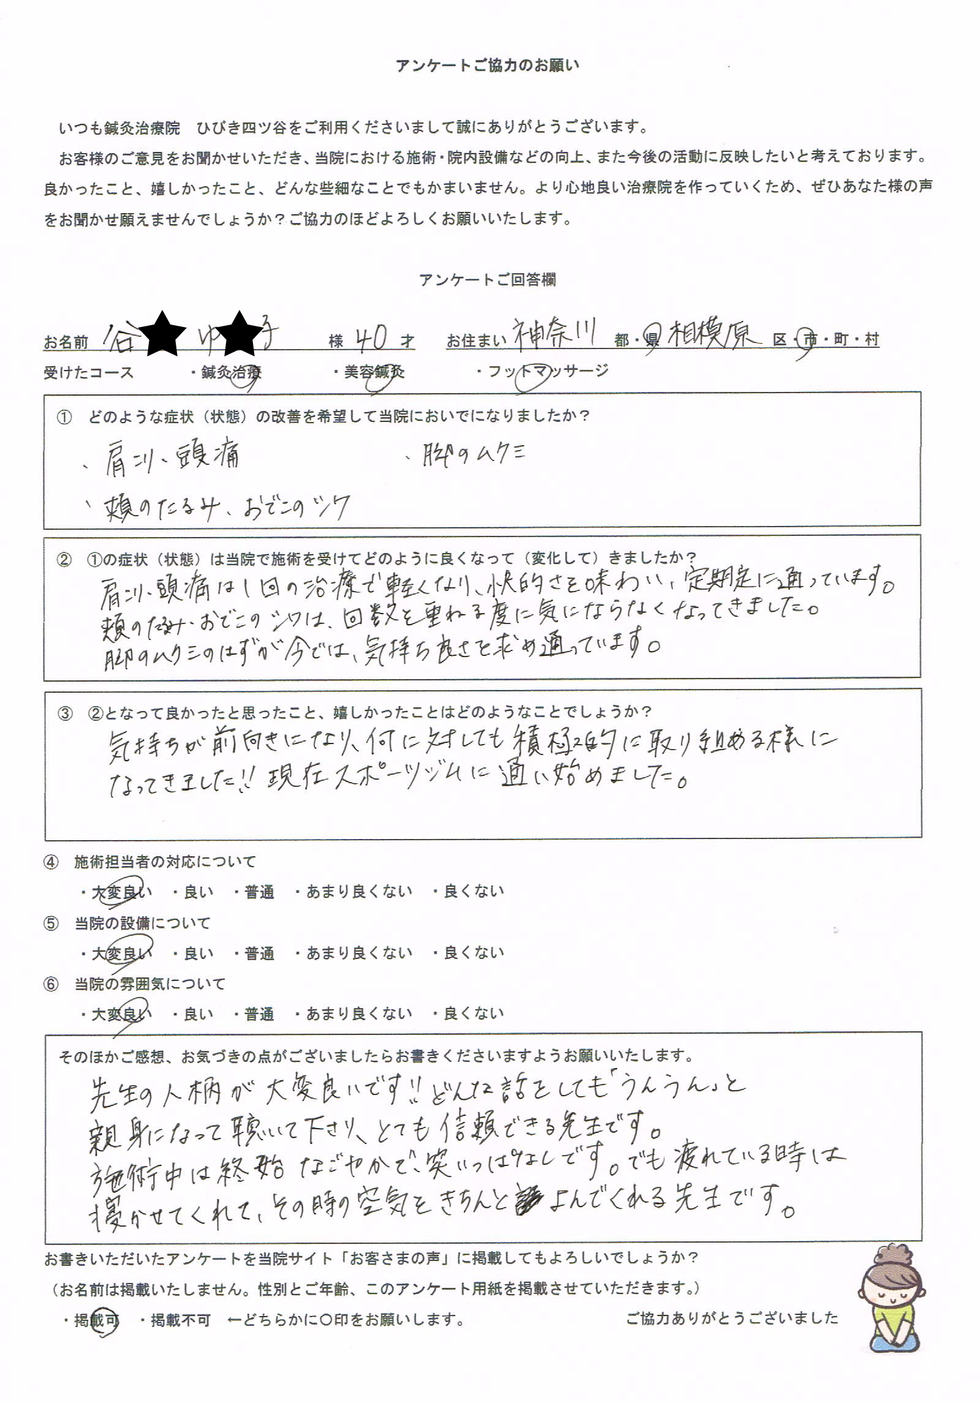 アンケートご協力のお願い
いつも鍼灸治療院　ひびき四ツ谷をご利用くださいまして誠にありがとうございます。
お客様のご意見をお聞かせいただき、当院における施術・院内設備などの向上、また今後の活動に反映したいと考えております。
良かったこと、嬉しかったこと、どんな些細なことでもかまいません。より心地良い治療院を作っていくため、ぜひあなた様の声
をお聞かせ願えませんでしょうか？ご協力のほどよろしくお願いいたします。
アンケートご回答欄
お名前　谷★　ゆ★子　様　40　才　お住まい　神奈川　都・県　相模原　区・市・町・村
受けたコース　・鍼灸治療　・美容鍼灸　・フットマッサージ
①　どのような症状（状態）の改善を希望して当院においでになりましたか？
・肩コリ、頭痛　・脚のムクミ
・頬のたるみ、おでこのシワ
②　①の症状（状態）は当院で施術を受けてどのように良くなって（変化して）きましたか？
肩コリ、頭痛は1回の治療で軽くなり、快的さを味わい、定期定に通っています。
頬のたるみ、おでこのシワは、回数を重ねる度に気にならなくなってきました。
脚のムクミのはずが今では、気持ち良さを求め通っています。
③　②となって良かったと思ったこと、嬉しかったことはどのようなことでしょうか？
気持ちが前向きになり、何に対しても積極的に取り組める様に
なってきました!! 現在スポーツジムに通い始めました。
④　施術担当者の対応について
・大変良い　・良い　・普通　・あまり良くない　・良くない
⑤　当院の設備について
・大変良い　・良い　・普通　・あまり良くない　・良くない
⑥　当院の雰囲気について
・大変良い　・良い　・普通　・あまり良くない　・良くない
そのほかご感想、お気づきの点がございましたらお書きくださいますようお願いいたします。
先生の人柄が大変良いです!! どんな話をしても「うんうん」と
親身になって聴いて下さり、とても信頼できる先生です。
施術中は終始なごやかで、笑いっぱなしです。でも疲れている時は
寝かせてくれて、その時の空気をきちんとよんでくれる先生です。
お書きいただいたアンケートを当院サイト「お客さまの声」に掲載してもよろしいでしょうか？
（お名前は掲載いたしません。性別とご年齢、このアンケート用紙を掲載させていただきます。）
・掲載可　・掲載不可　←どちらかに〇印をお願いします。　ご協力ありがとうございました